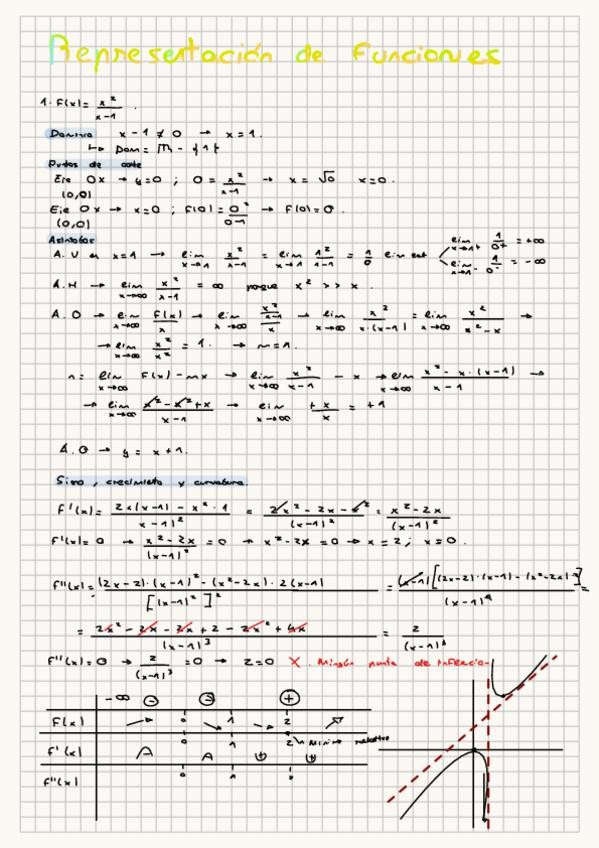 Representación de Funciones
1. F(x) = x² / x-1 .
Dominio x - 1 ≠ 0 → x = 1.
↳ Dom = ℝ - {1}
Puntos de corte
Eje Ox → y=0 ; 0 = x² / x-1 → x = √0 x=0.
(0,0)
Eje Ox → x=0 ; F(0) = 0² / 0-1 → F(0) = 0.
(0,0)
Asíntotas
A.V en x=1 → lim x→1 x² / x-1 = lim x→1 1² / 1-1 = 1/0 lim lat lim x→1⁺ 1/0⁺ = +∞
lim x→1⁻ 1/0⁻ = -∞
A.H → lim x→∞ x² / x-1 = ∞ porque x² >> x .
A.O → lim x→∞ F(x) / x → lim x→∞ x² / x-1 / x → lim x→∞ x² / x·(x-1) = lim x→∞ x² / x²-x →
→ lim x→∞ x² / x² = 1. → m=1.
n = lim x→∞ F(x) - mx → lim x→∞ x² / x-1 - x → lim x→∞ x² - x·(x-1) / x-1 →
→ lim x→∞ x² - x² + x / x-1 → lim x→∞ +x / x = +1
A.O → y = x+1.
Simo, crecimiento y curvatura.
F'(x) = 2x(x-1) - x²·1 / (x-1)² = 2x² - 2x - x² / (x-1)² = x² - 2x / (x-1)²
F'(x) = 0 → x² - 2x / (x-1)² = 0 → x² - 2x = 0 → x = 2 ; x = 0 .
F''(x) = (2x-2)·(x-1)² - (x²-2x)·2(x-1) / [(x-1)²]² = (x-1)[(2x-2)·(x-1) - (x²-2x)·2] / (x-1)⁴ =
= 2x² - 2x - 2x + 2 - 2x² + 4x / (x-1)³ = 2 / (x-1)³
F''(x) = 0 → 2 / (x-1)³ = 0 → 2=0 X . Ningún punto de inflexion
-∞ - - +
F(x) 0 1 2
F'(x) 0 1 2 Minimo relativo
F''(x) 0